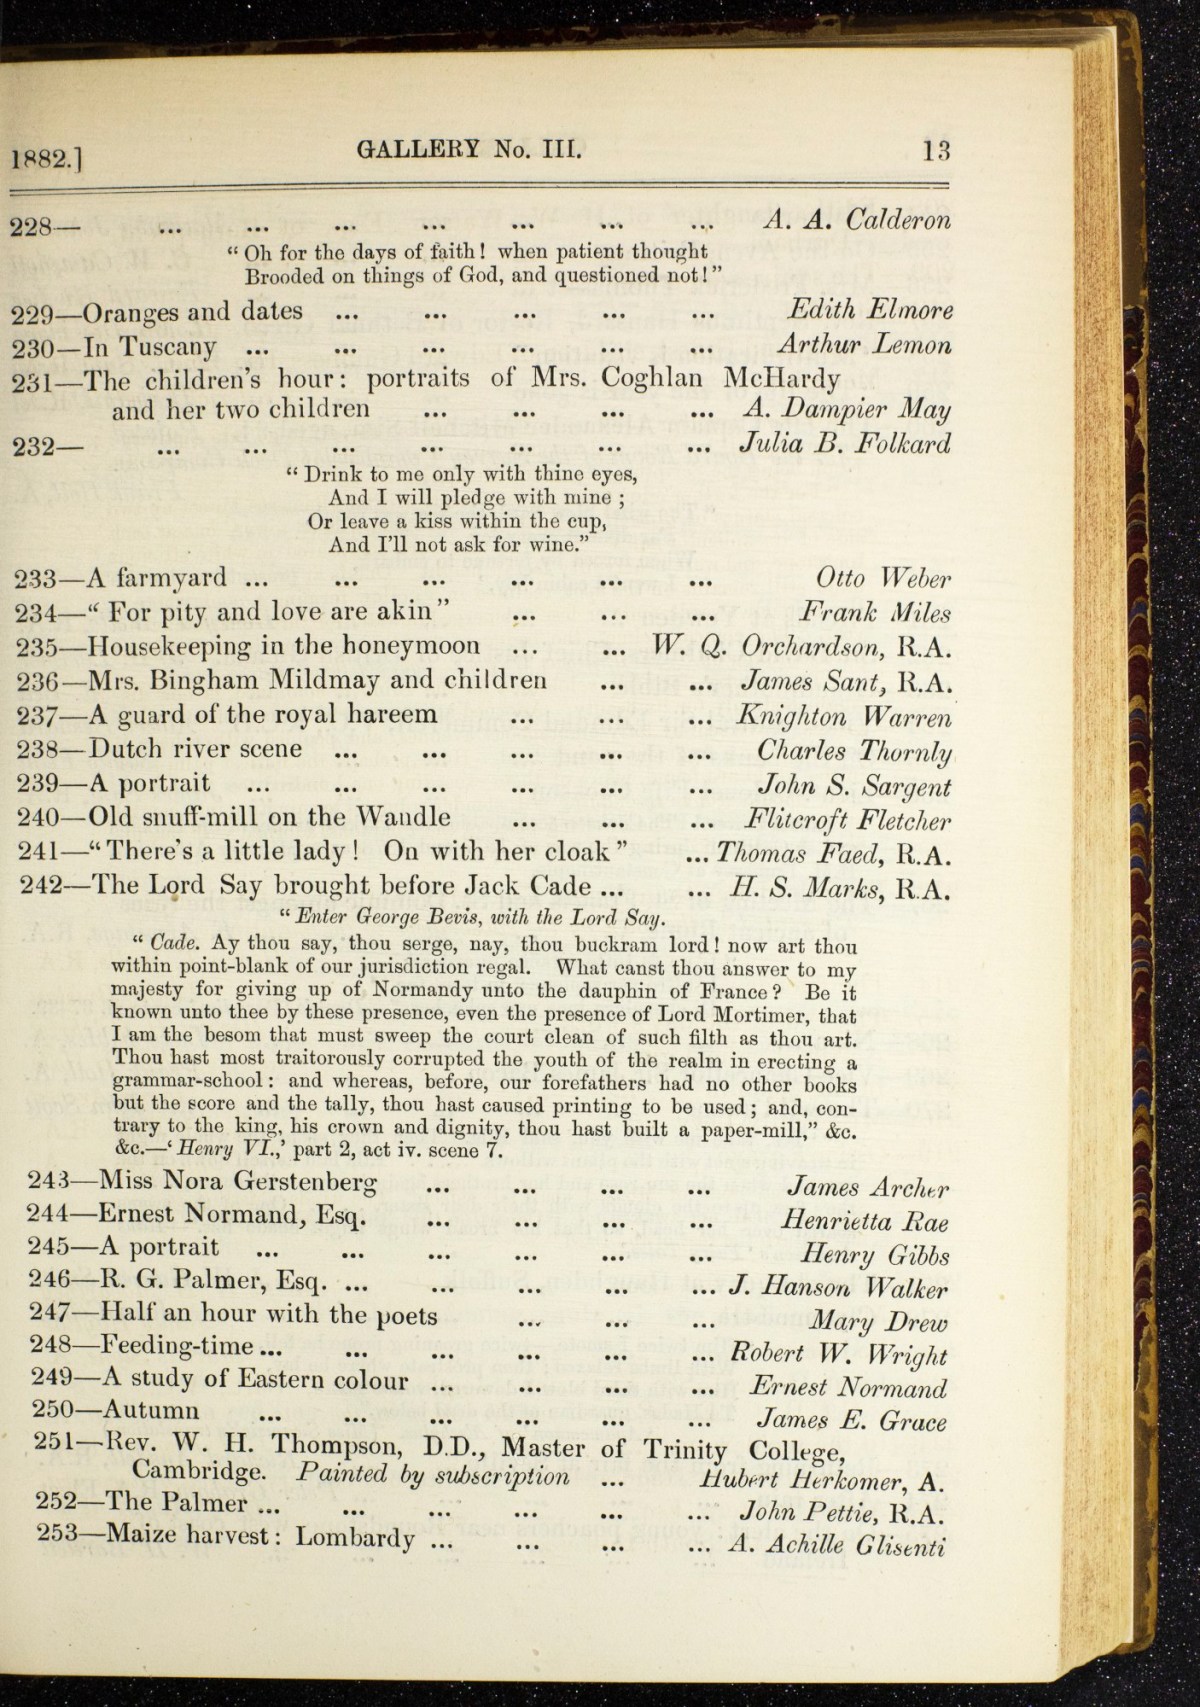 1882.] GALLERY No. III. 13
228— ... ... ... ... ... ... ... A. A. Calderon
“ Oh for the days of faith ! when patient thought
Brooded on things of God, and questioned not ! ”
229—Oranges and dates ... ... ... ... ... Edith Elmore
230—In Tuscany ... ... ... ... ... ... Arthur Lemon
231—The children's hour : portraits of Mrs. Coghlan McHardy
and her two children ... ... ... ... A. Dampier May
232— ... ... ... ... ... ... ... Julia B. Folkard
“ Drink to me only with thine eyes,
And I will pledge with mine ;
Or leave a kiss within the cup,
And I'll not ask for wine.”
233—A farmyard ... ... ... ... ... ... Otto Weber
234—“ For pity and love are akin ” ... ... ... Frank Miles
235—Housekeeping in the honeymoon ... ... W. Q. Orchardson, R.A.
236—Mrs. Bingham Mildmay and children ... ... James Sant, R.A.
237—A guard of the royal hareem ... ... ... Knighton Warren
238—Dutch river scene ... ... ... ... ... Charles Thornly
239—A portrait ... ... ... ... ... ... John S. Sargent
240—Old snuff-mill on the Wandle ... ... ... Flitcroft Fletcher
241—“ There's a little lady ! On with her cloak ” ... Thomas Faed, R.A.
242—The Lord Say brought before Jack Cade ... ... H. S. Marks, R.A.
“ Enter George Bevis, with the Lord Say.
“ Cade. Ay thou say, thou serge, nay, thou buckram lord ! now art thou
within point-blank of our jurisdiction regal. What canst thou answer to my
majesty for giving up of Normandy unto the dauphin of France ? Be it
known unto thee by these presence, even the presence of Lord Mortimer, that
I am the besom that must sweep the court clean of such filth as thou art.
Thou hast most traitorously corrupted the youth of the realm in erecting a
grammar-school : and whereas, before, our forefathers had no other books
but the score and the tally, thou hast caused printing to be used ; and, con-
trary to the king, his crown and dignity, thou hast built a paper-mill,” &c.
&c.—‘ Henry VI.,’ part 2, act iv. scene 7.
243—Miss Nora Gerstenberg ... ... ... ... James Archer
244—Ernest Normand, Esq. ... ... ... ... Henrietta Rae
245—A portrait ... ... ... ... ... ... Henry Gibbs
246—R. G. Palmer, Esq. ... ... ... ... ... J. Hanson Walker
247—Half an hour with the poets ... ... ... Mary Drew
248—Feeding-time ... ... ... ... ... ... Robert W. Wright
249—A study of Eastern colour ... ... ... ... Ernest Normand
250—Autumn ... ... ... ... ... ... James E. Grace
251—Rev. W. H. Thompson, D.D., Master of Trinity College,
Cambridge. Painted by subscription ... Hubert Herkomer, A.
252—The Palmer ... ... ... ... ... ... John Pettie, R.A.
253—Maize harvest : Lombardy ... ... ... ... A. Achille Glisenti